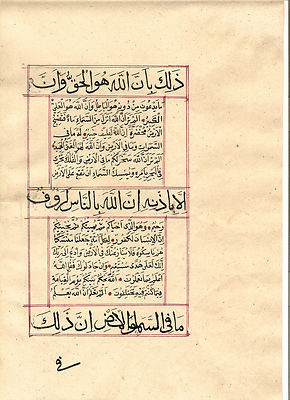 ذلك بأن الله هو الحق وأن
ما يدعون من دونه هو الباطل وأن الله هو العلي
الكبير ألم تر أن الله أنزل من السماء ماء فتصبح
الأرض مخضرة إن الله لطيف خبير له ما في
السموات وما في الأرض وإن الله لهو الغني الحميد
ألم تر أن الله سخر لكم ما في الأرض والفلك تجري
في البحر بأمره ويمسك السماء أن تقع على الأرض
إلا بإذنه إن الله بالناس لرؤف
رحيم وهو الذي أحياكم ثم يميتكم ثم يحييكم
إن الإنسان لكفور لكل أمة جعلنا منسكا
هم ناسكوه فلا ينازعنك في الأمر وادع إلى ربك
إنك لعلى هدى مستقيم وإن جادلوك فقل الله
أعلم بما تعملون الله يحكم بينكم يوم القيمة
فيما كنتم فيه تختلفون ألم تعلم أن الله يعلم
ما في السماء والأرض إن ذلك
في